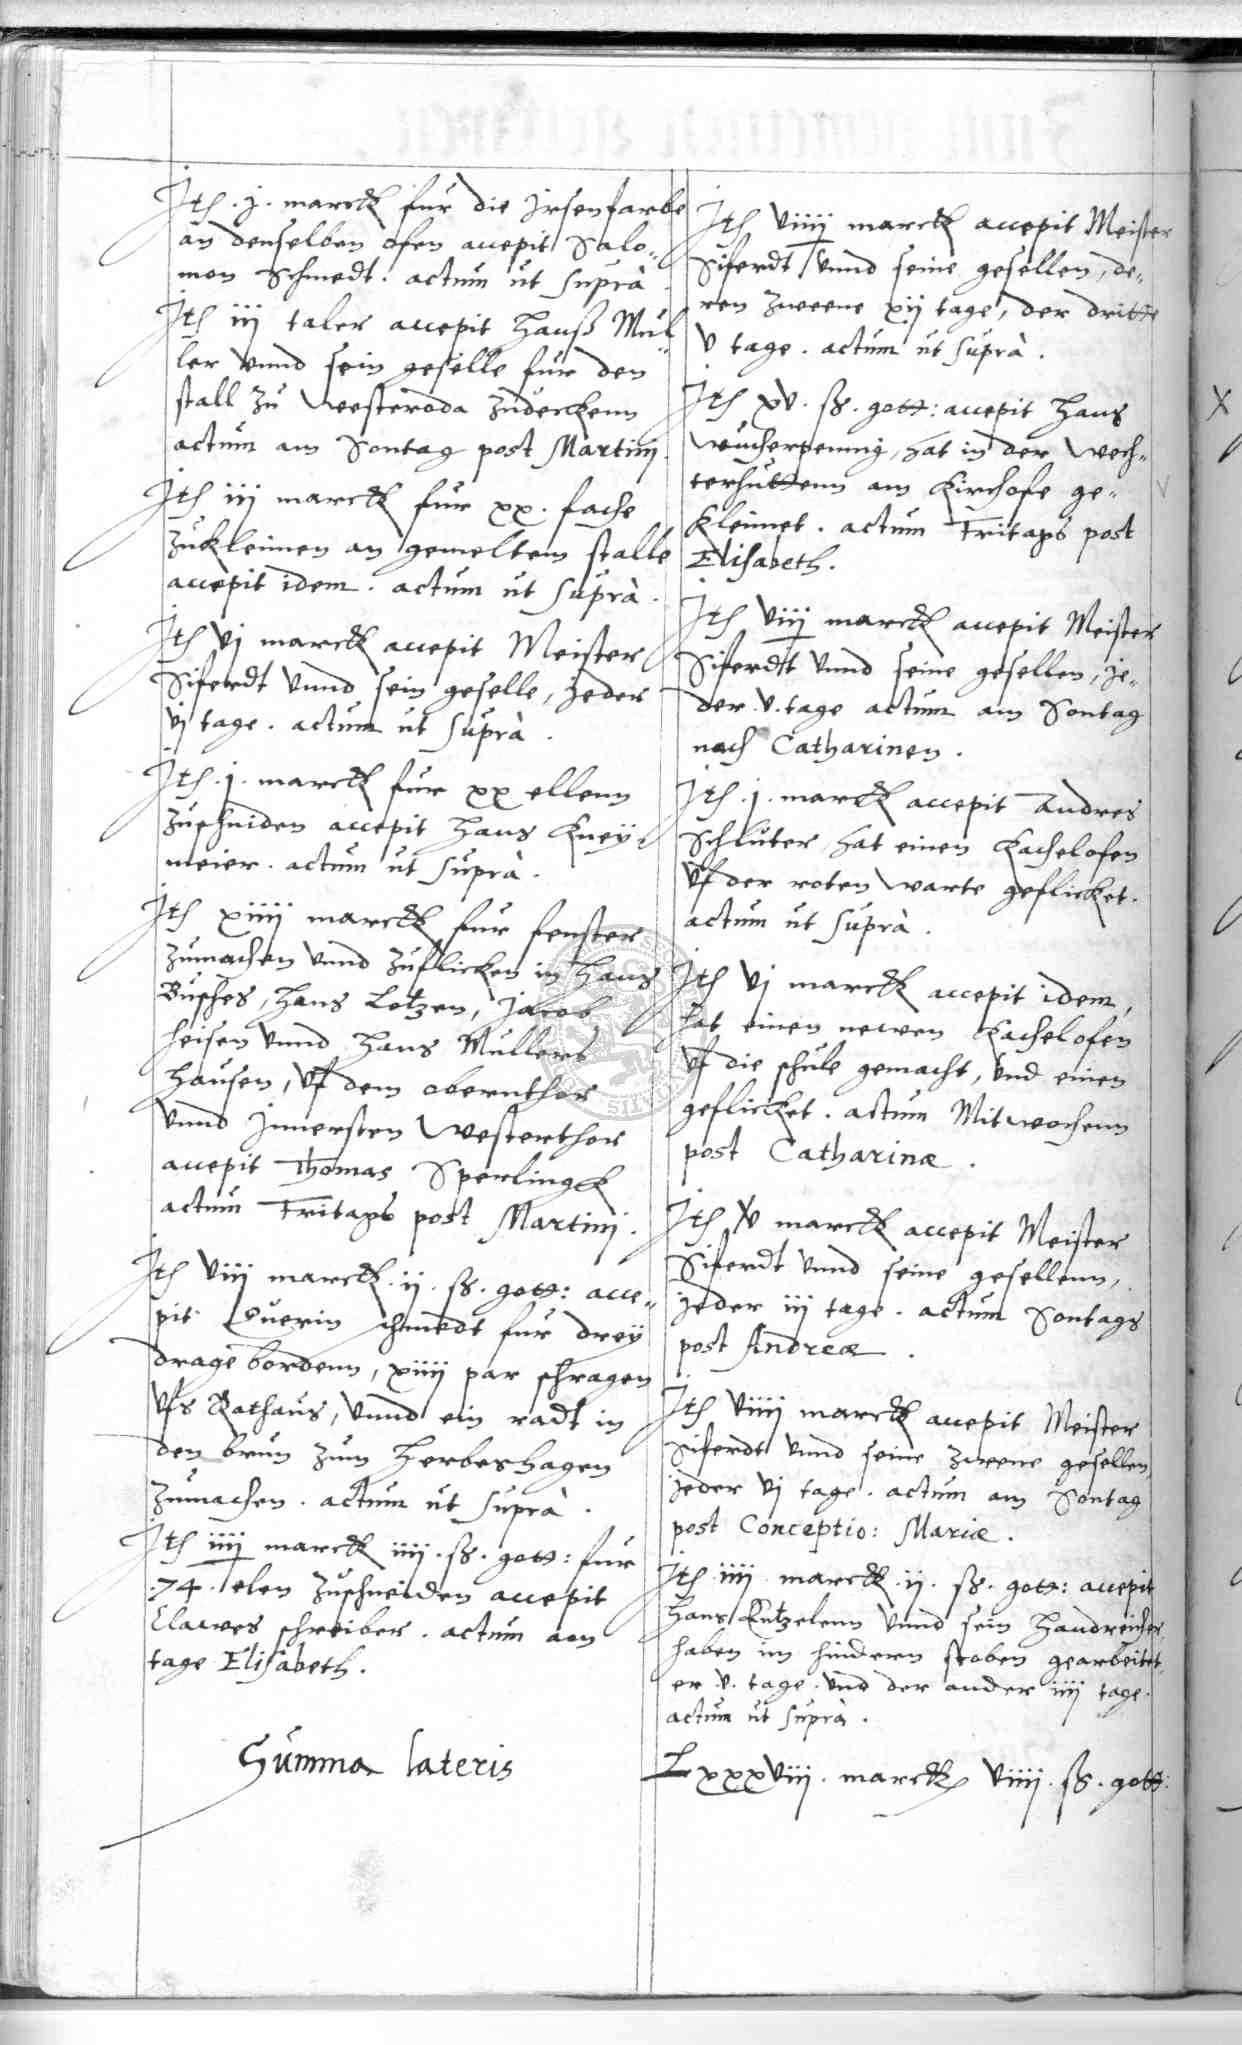 Jtem .j. marck fur die jrsenfarbe
an denselben ofen accepit Salo-
mon Schmedt. actum ut suprà.
Jtem iij taler accepit Hanß Mul-
ler vnnd sein geselle fur den
stall zu Westeroda zudeckenn
actum am Sontag post Martinj.
Jtem iij marck fur xx. fache
zukleimen an gemeltem stalle
accepit idem. actum ut suprà.
Jtem vj marck accepit Meister
Siferdt vnnd sein geselle, jeder
vj tage. actum ut suprà.
Jtem .j. marck fur xx ellenn
zuschniden accepit Hans
meier. actum ut suprà.
Jtem xiiij marck fur fenster
zumachen vnnd zuflicken in Hans
Busches, Hans Lotzen, Jacob
Heisen vnnd Hans Mullers
Hausen, vf dem obernthor
vnnd jnnersten Westerthor
accepit Thomas Sperlingk
actum Fritags post Martinj.
Jtem viij marck .ij. ß. gott: acce-
pit Querin schmedt fur drey
drage bordenn, xiiij par schragen
vfs Rathaus, vnnd ein radt in
den brun zum Herbeshagen
zumachen. actum ut suprà.
Jtem iiij marck iiij. ß. gott: fur
.74. elen zuschneiden accepit
Clawes schreiber. actum am
tage Elisabeth.
Jtem viiij marck accepit Meister
Siferdt vnnd seine gesellen, de-
ren zweene xij tage, der dritte
v tage. actum ut suprà.
Jtem xv. ß. gott: accepit Hans
Wucherpennig, hat in der Wech-
terhuttenn am Kirchofe ge-
kleimet. actum Fritags post
Elisabeth.
Jtem viij marck accepit Meister
Siferdt vnnd seine gesellen, je-
der .v. tage actum am Sontag
nach Catharinen.
Jtem .j. marck accepit Andres
Schluter hat einen Kachelofen
vf der roten warte geflicket.
actum ut suprà.
Jtem vj marck accepit idem,
hat einen newen Kachelofen
vf die schule gemacht, vnd einen
geflicket. actum Mitwochenn
post Catharinæ.
Jtem xv marck accepit Meister
Siferdt vnnd seine gesellenn,
jeder iij tage. actum Sontags
post Andreæ.
Jtem viiij marck accepit Meister
Siferdt vnnd seine zweene gesellen,
jeder vj tage. actum am Sontag
post Conceptio: Mariæ.
Jtem iiij marck .ij. ß. gott: accepit
Hans Kutzelenn vnnd sein Handreicher,
haben im hindern stoben gearbeitet,
er .v. tage. vnd der ander iiij tage.
actum ut suprà.
Summa lateris
Lxxxviij. marck viiij. ß. gott: